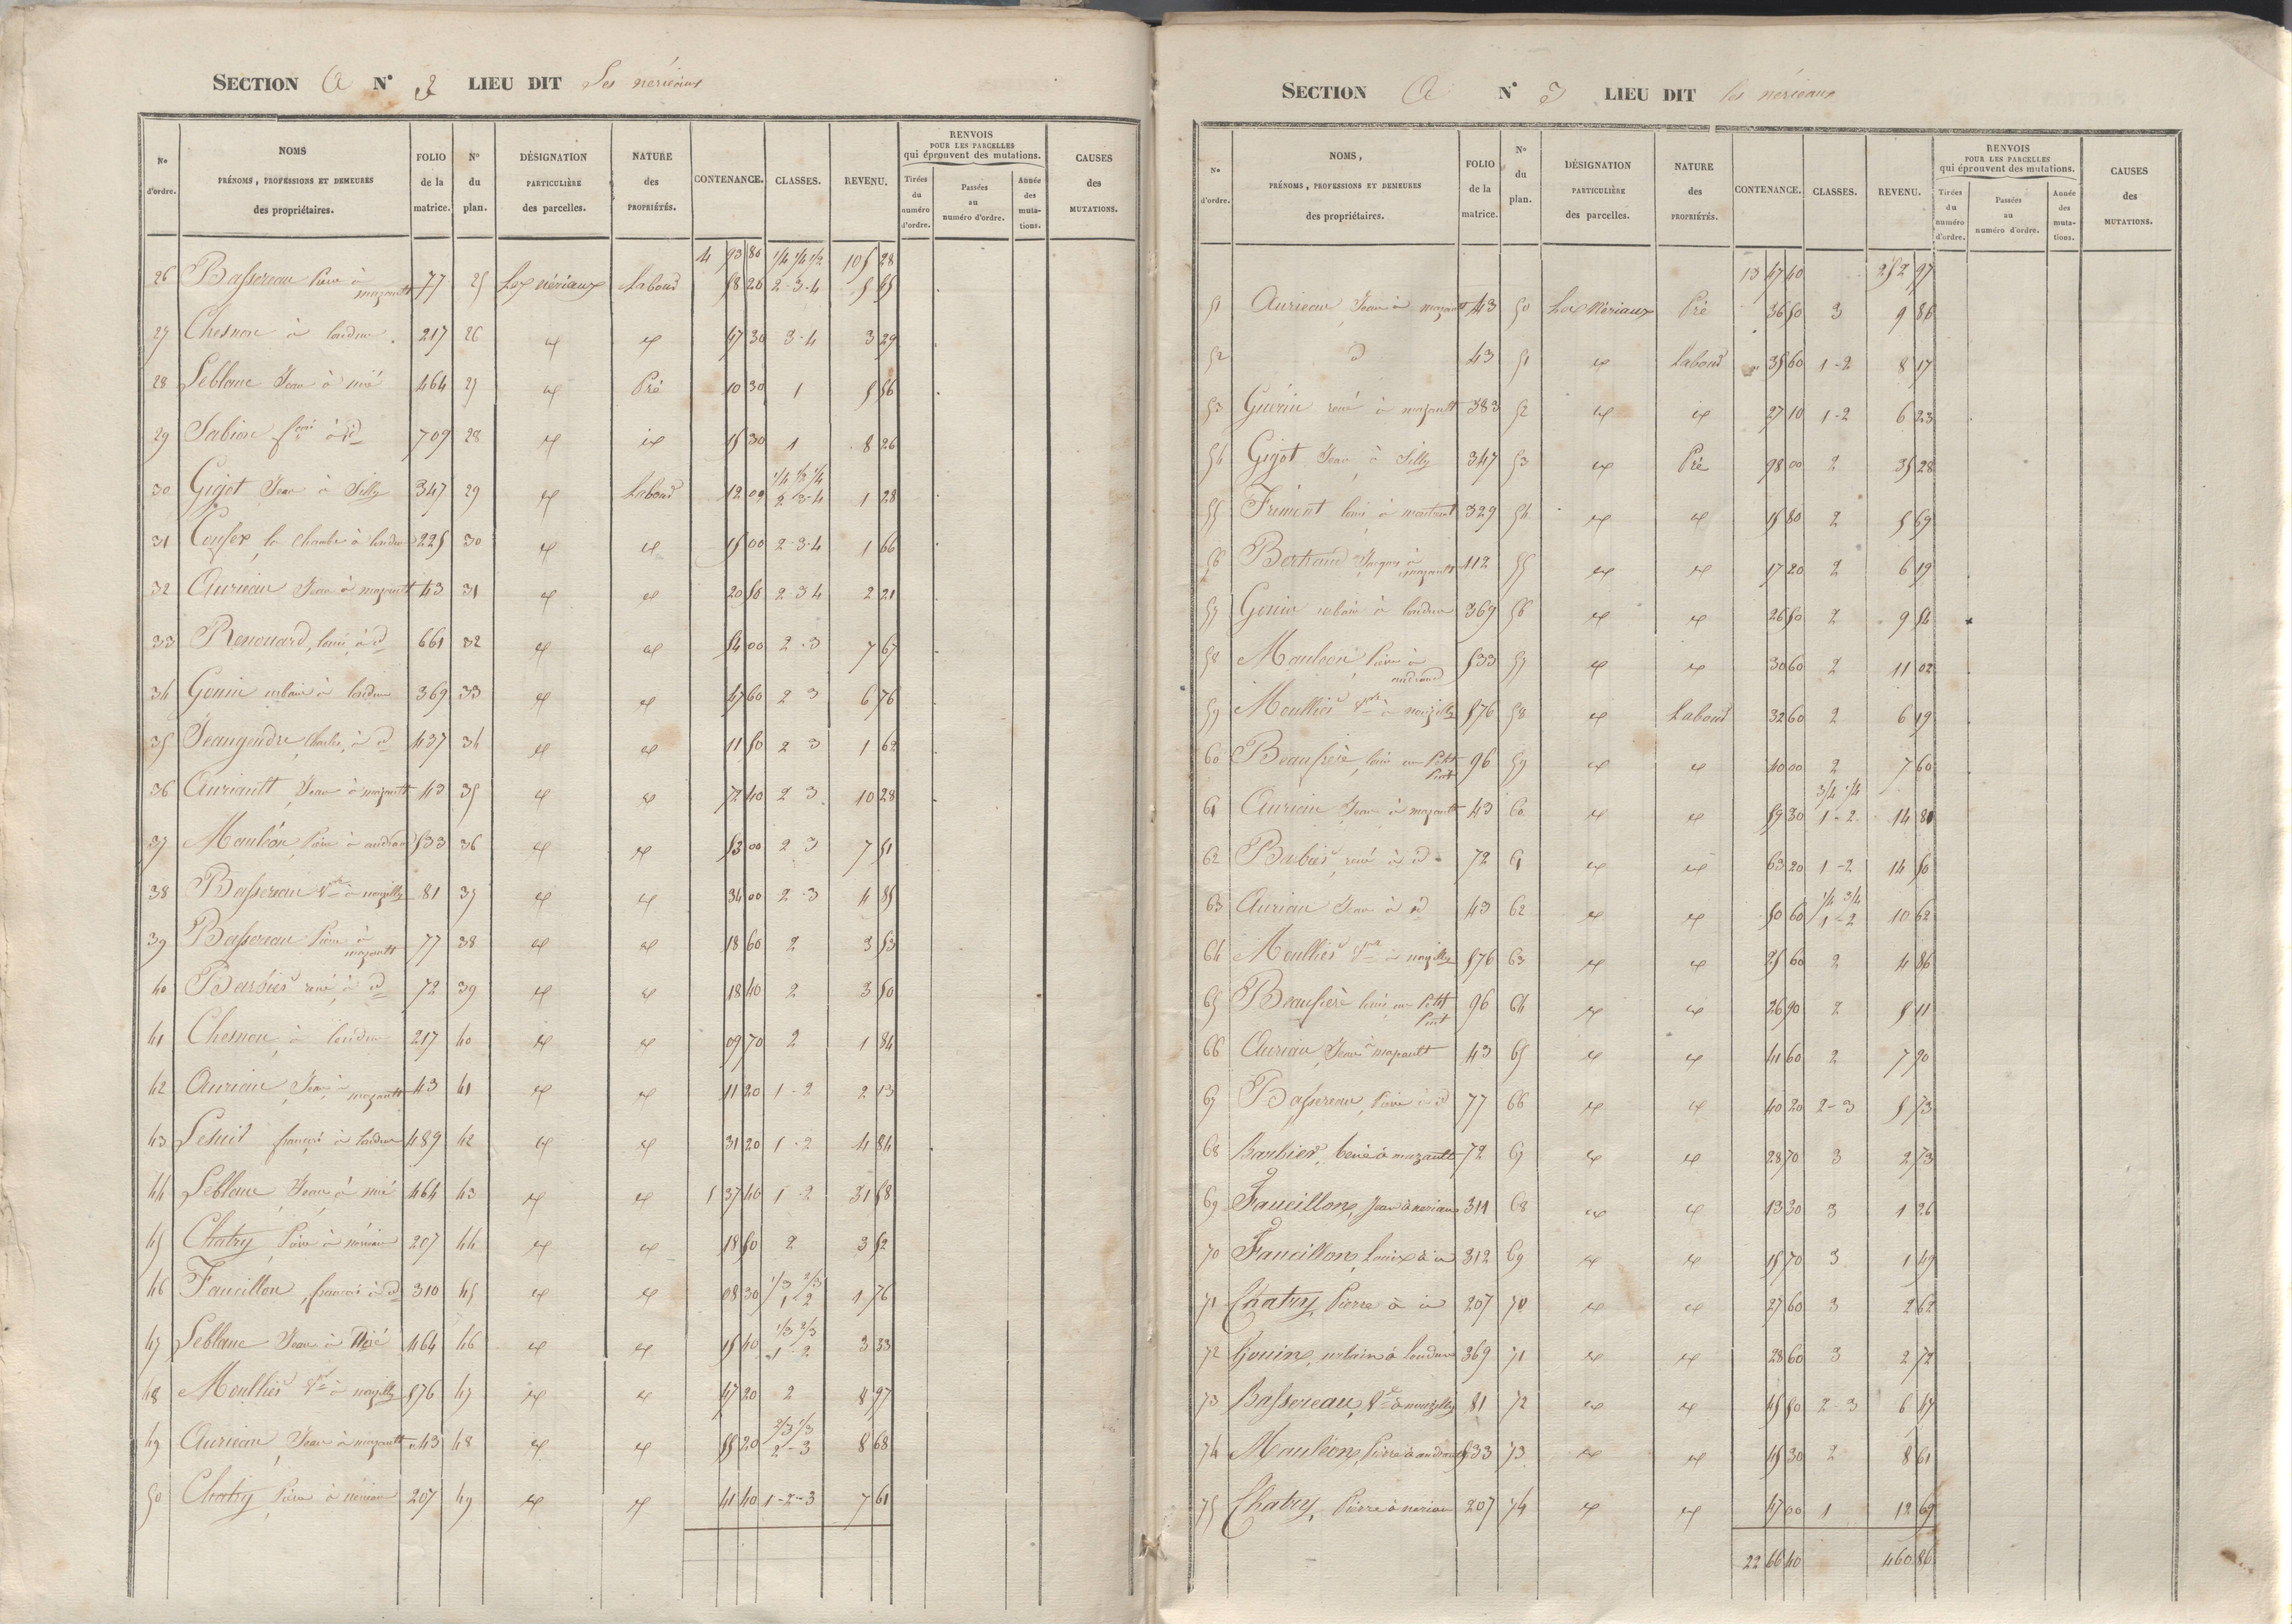 SECTION A N° 2 LIEU DIT Les nérieaux
N° d'ordre. NOMS PRÉNOMS, PROFESSIONS ET DEMEURES des propriétaires. FOLIO de la matrice. N° du plan. DÉSIGNATION PARTICULIÈRE des parcelles. NATURE des PROPRIÉTÉS. CONTENANCE. CLASSES. REVENU. RENVOIS POUR LES PARCELLES qui éprouvent des mutations. Tirées du numéro d'ordre. Passées au numéro d'ordre. Année des mutations. CAUSES des MUTATIONS.
4 93 80 1/4 1/4 1/2 105 28
26 Bassereau Pierre à mazault 77 25 Les nériaux Labour 58 20 2-3-4 5 65
27 Chesnon à loudun 217 26 id id 47 30 3-4 3 29
28 Leblanc Jean à nié 464 27 id Pré 10 30 1 5 56
29 Sabion à id 709 28 id id 15 30 1 8 26
30 Gigot Jean à Silly 347 29 id Labour 12 00 1/4 1/2 1/4 2 3-4 1 28
31 la Chambre à loudun 225 30 id id 15 00 2-3-4 1 66
32 Aurieau Jean à mazault 43 31 id id 20 50 2 3 4 2 21
33 Renouard, louis, à id 661 32 id id 54 00 2-3 7 67
34 Gouin urbain à loudun 369 33 id id 47 60 2 3 6 76
35 Jeangendre, Charles, à id 437 34 id id 11 50 2 3 1 62
36 Auriault, Jean à mazault 43 35 id id 72 40 2 3 10 28
37 Mauléon, Pierre à 533 36 id id 53 00 2 3 7 51
38 Bassereau Ve à nouzilly 81 37 id id 34 00 2-3 4 85
39 Bassereau Pierre à mazault 77 38 id id 18 60 2 3 53
40 Barbier rené à id 72 39 id id 18 40 2 3 50
41 Chesnon, à loudun 217 40 id id 09 70 2 1 84
42 Aurieau, Jean, à mazault 43 41 id id 11 20 1-2 2 13
43 françois à loudun 489 42 id id 31 20 1-2 4 84
44 Leblanc, Jean, à nié 464 43 id id 1 37 40 1-2 31 58
45 Chatry, Pierre à nériau 207 44 id id 18 50 2 3 52
46 Faucillon, françois à id 310 45 id id 08 30 1/3 2/3 1-2 1 76
47 Leblanc Jean à Nié 464 46 id id 15 40 1/3 2/3 1-2 3 33
48 Moullier Ve à nouzilly 576 47 id id 47 20 2 8 97
49 Aurieau, Jean à mazault 43 48 id id 55 20 2/3 1/3 2-3 8 68
50 Chatry, Pierre à nériau 207 49 id id 41 40 1-2-3 7 61
SECTION A N° 3 LIEU DIT les nérieaux
N° d'ordre. NOMS, PRÉNOMS, PROFESSIONS ET DEMEURES des propriétaires. FOLIO de la matrice. N° du plan. DÉSIGNATION PARTICULIÈRE des parcelles. NATURE des PROPRIÉTÉS. CONTENANCE. CLASSES. REVENU. RENVOIS POUR LES PARCELLES qui éprouvent des mutations. Tirées du numéro d'ordre. Passées au numéro d'ordre. Année des mutations. CAUSES des MUTATIONS.
13 47 40 252 97
51 Aurieau, Jean à mazault 43 50 Les Nériaux Pré 36 50 3 9 86
52 id 43 51 id Labour 35 60 1-2 8 17
53 Guérin rené à mazault 383 52 id id 27 10 1-2 6 23
54 Gigot Jean à Silly 347 53 id Pré 98 00 2 35 28
55 Frémont louis à 329 54 id id 15 80 2 5 69
56 Bertrand Jacques à mazault 112 55 id id 17 20 2 6 19
57 Gouin urbain à loudun 369 56 id id 26 50 2 9 54
58 Mauléon, Pierre à 533 57 id id 30 60 2 11 02
59 Moullier Ve à nouzilly 576 58 id Labour 32 60 2 6 19
60 Beaufrère, louis au Petit Pont 96 59 id id 40 00 2 7 60
61 Aurieau Jean à mazault 43 60 id id 59 30 3/4 1/4 1-2 14 80
62 Barbier, rené à id 72 61 id id 63 20 1-2 14 50
63 Aurieau Jean à id 43 62 id id 50 60 1/4 3/4 1-2 10 62
64 Moullier Ve à nouzilly 576 63 id id 25 60 2 4 86
65 Beaufrère louis au Petit Pont 96 64 id id 26 90 2 5 11
66 Aurieau, Jean à mazault 43 65 id id 41 60 2 7 90
67 Bassereau, Pierre à id 77 66 id id 40 20 2-3 5 73
68 Barbier, René à mazault 72 67 id id 28 70 3 2 73
69 Faucillon, Jean à neriau 311 68 id id 13 30 3 1 26
70 Faucillon, Louis à id 312 69 id id 15 70 3 1 49
71 Chatry, Pierre à id 207 70 id id 27 60 3 2 62
72 Gouin, urbain à loudun 369 71 id id 28 60 3 2 72
73 Bassereau, Ve à nouzilly 81 72 id id 45 50 2-3 6 47
74 Mauléon, Pierre à 533 73 id id 45 30 2 8 61
75 Chatry, Pierre à neriau 207 74 id id 47 00 1 12 69
22 66 40 460 86